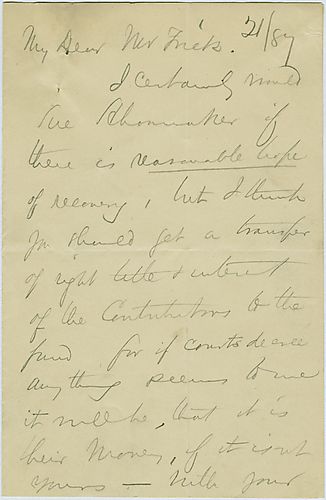 My Dear Mr Frick. 21/87
I certainly would
Sue Shonmaker if
there is reasonable hope
of recovery, but I think
you should get a transfer
of right title & interest
of the Contributors to the
fund for if courts decree
anything seems to me
it will be, that it is
their Money, if it is not
yours — With your